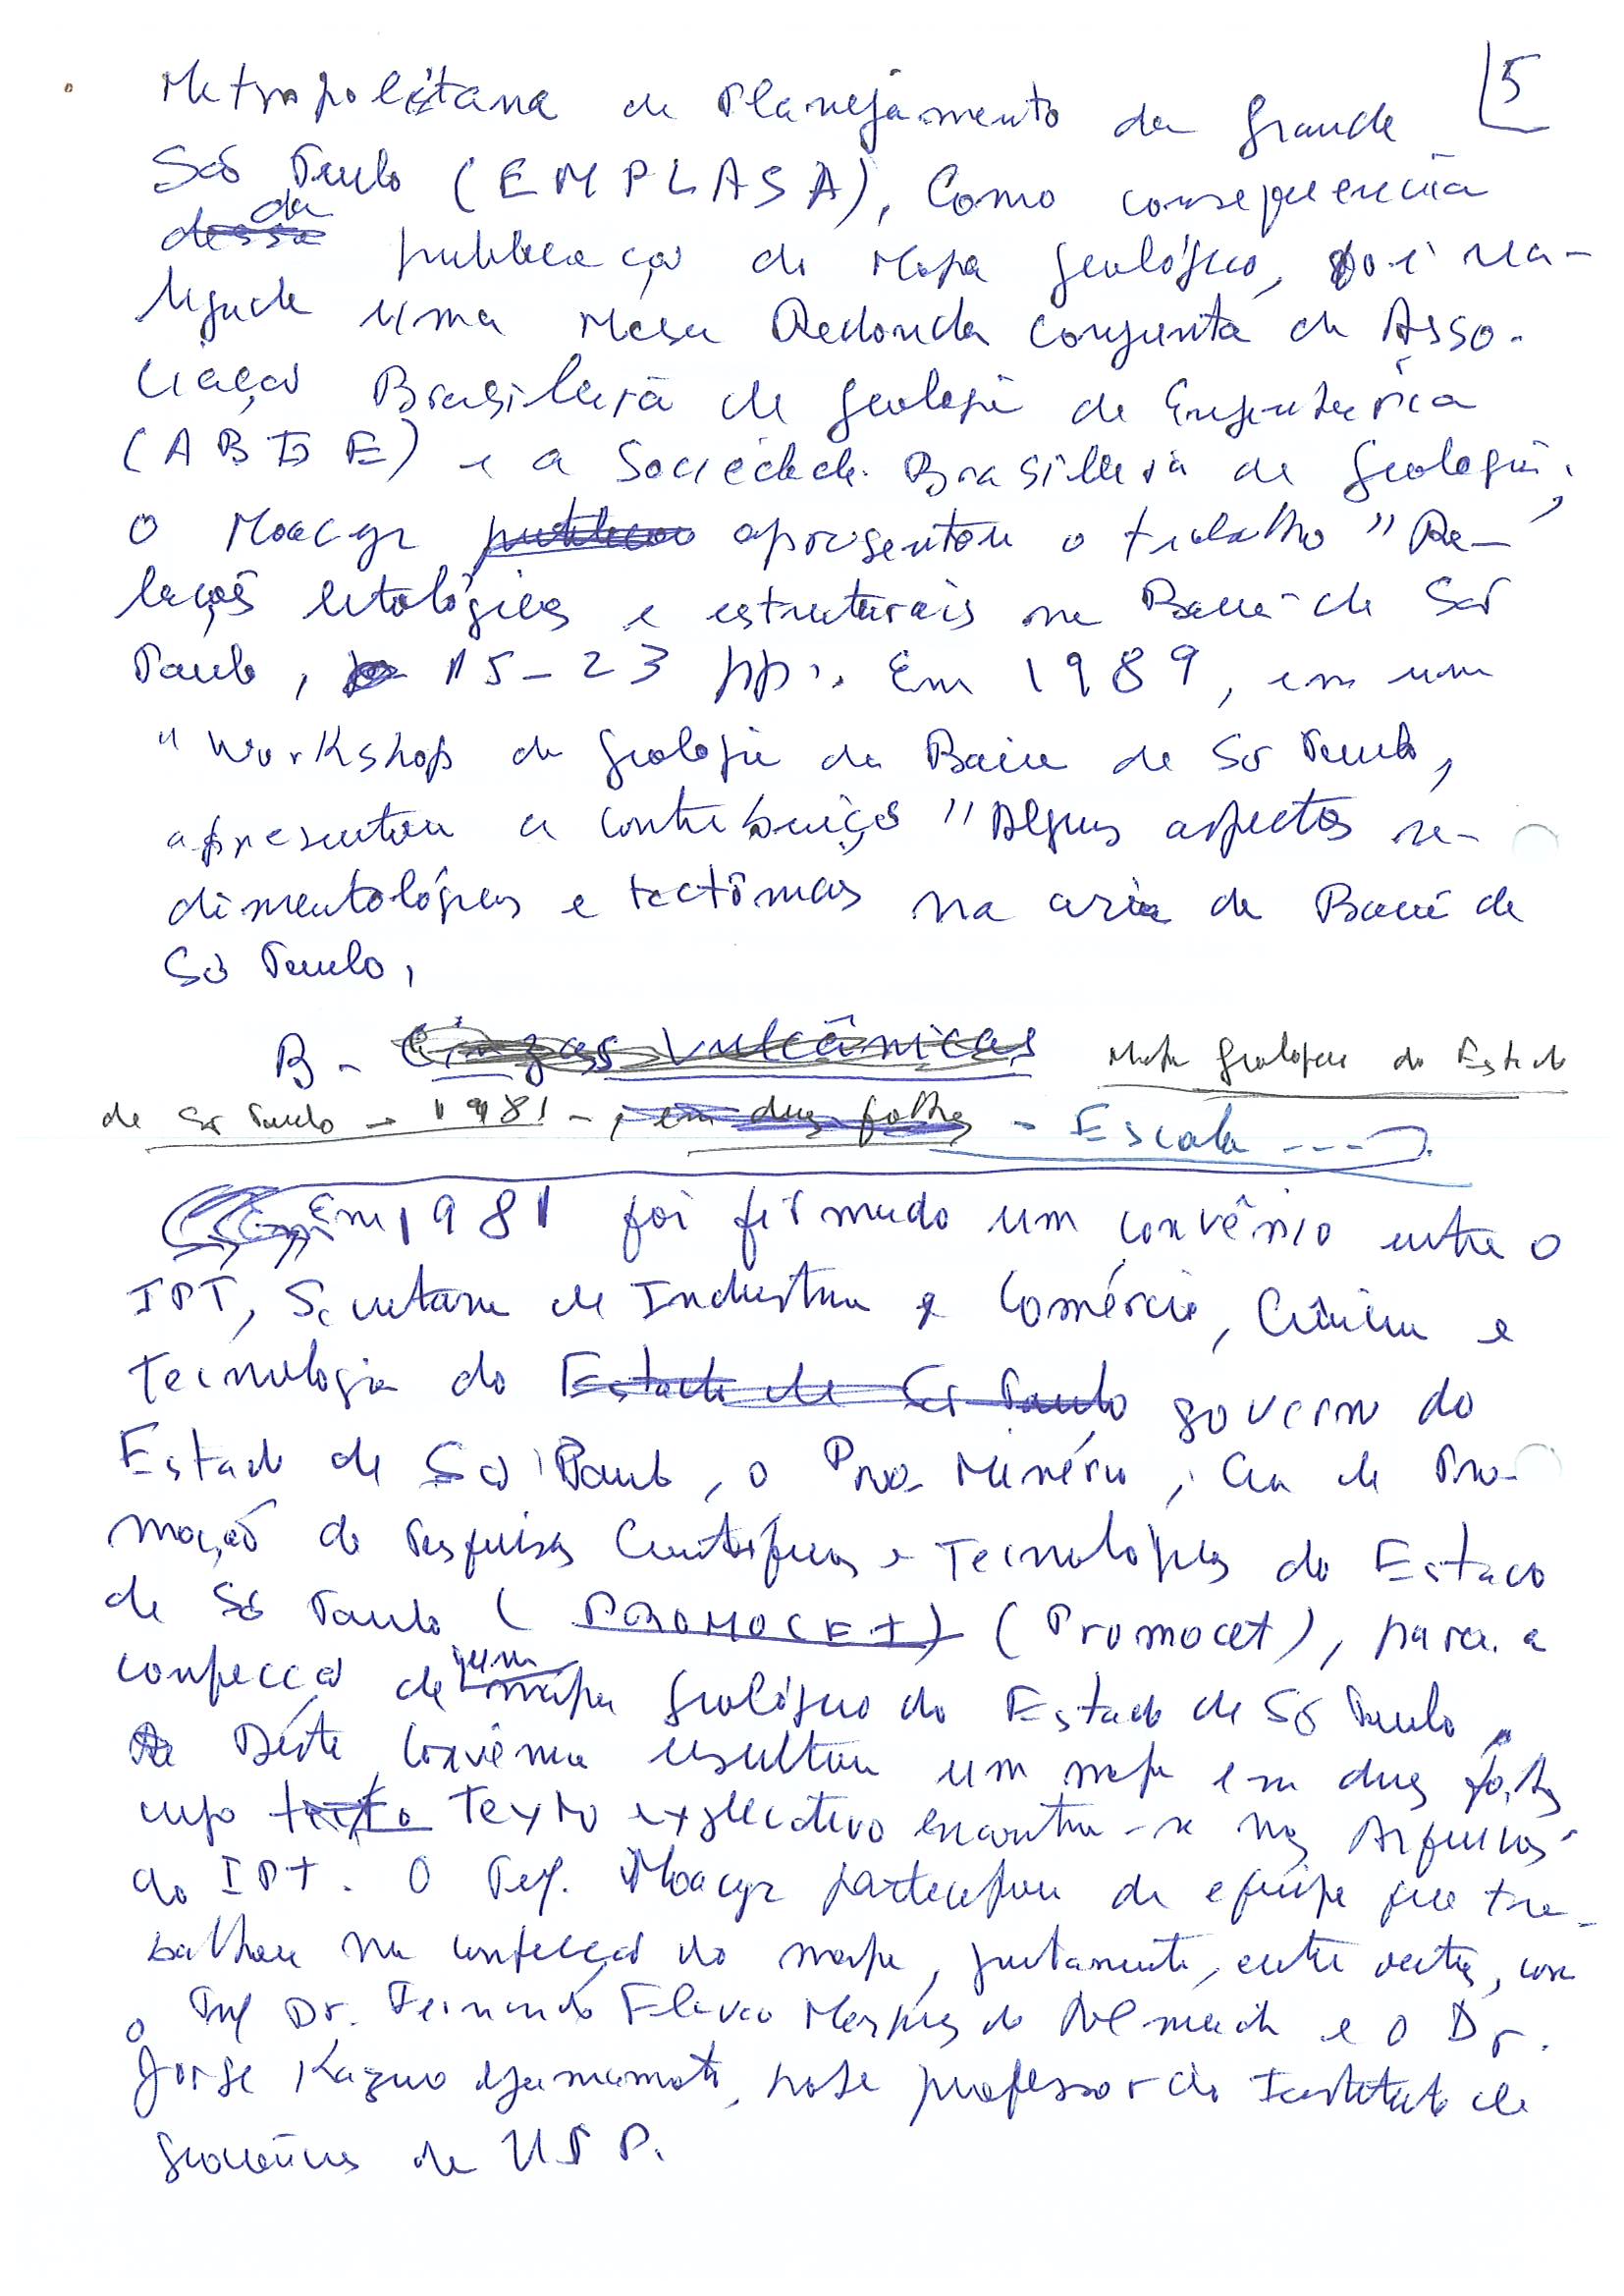 5
Metropolitana de Planejamento da Grande
São Paulo (EMPLASA), Como consequencia
dessa da publicação do Mapa geológico, foi rea-
ligada uma Mesa Redonda conjunta da Asso-
ciação Brasileira de geologia de Engenharia
(ABGE) e a Sociedade Brasileira de Geologia,
O Moacyr publicou apresentou o trabalho "Re-
lações litológicas e estruturais na Bacia de São
Paulo, 15-23 pp., Em 1989, em um
"Workshop de geologia da Bacia de São Paulo,
apresentou a contribuição "Alguns aspectos se-
dimentológicos e tectônicos na area da Bacia de
São Paulo,
B - Cinzas Vulcânicas Mapa Geologico do Estado
de São Paulo - 1981 -, em duas folhas - Escala ---).
Em 1981 foi firmado um convênio entre o
IPT, Secretaria de Industria e Comércio, Ciência e
Tecnologia do Estado de São Paulo governo do
Estado de São Paulo, o Pró-Minério, Cia de Pro-
moção de Pesquisas Científicas e Tecnológicas do Estado
de São Paulo (PROMOCET) (Promocet), para a
confecção de um mapa geológico do Estado de São Paulo.
Dêste convênio resultou um mapa em duas folhas
cujo texto Texto explicativo encontra-se nos Arquivos
do IPT. O Prof. Moacyr participou da equipe que tra-
balhou na confecção do mapa, juntamente, entre outros, com
o Prof Dr. Fernando Flávio Marques de Almeida e o Dr.
Jorge Kazuo Yamamoto, hoje professor do Instituto de
Geociências da USP.